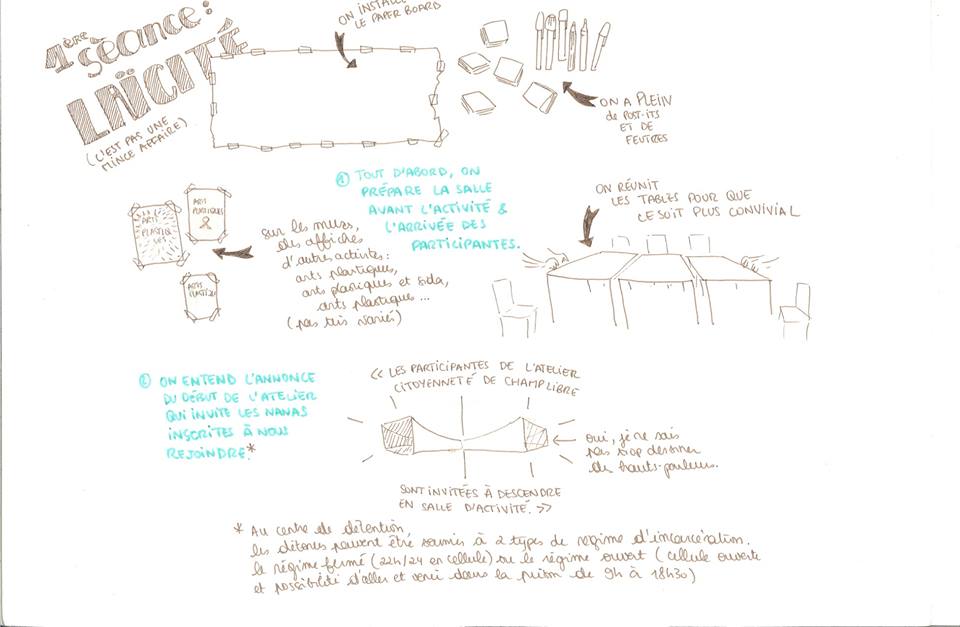 1ÈRE
SÉANCE :
LAÏCITÉ
(C'EST PAS UNE
MINCE AFFAIRE)
ON INSTALLE
LE PAPER BOARD
ON A PLEIN
de POST-ITS
ET DE
FEUTRES
① TOUT D'ABORD, ON
PRÉPARE LA SALLE
AVANT L'ACTIVITÉ &
L'ARRIVÉE DES
PARTICIPANTES.
ARTS
PLASTIQUES
ARTS
PLASTIQUES
ARTS
sur les murs,
des affiches
d'autres activités :
arts plastiques,
arts plastiques et sida,
arts plastiques ...
(pas très variés)
ON RÉUNIT
LES TABLES POUR QUE
CE SOIT PLUS CONVIVIAL
② ON ENTEND L'ANNONCE
DU DÉBUT DE L'ATELIER
QUI INVITE LES NANAS
INSCRITES À NOUS
REJOINDRE.*
« LES PARTICIPANTES DE L'ATELIER
CITOYENNETÉ DE CHAMP LIBRE
oui, je ne sais
pas trop dessiner
des hauts-parleurs.
SONT INVITÉES À DESCENDRE
EN SALLE D'ACTIVITÉ. »
* Au centre de détention,
les détenues peuvent être soumises à 2 types de régime d'incarcération.
le régime fermé (22h/24 en cellule) ou le régime ouvert (cellule ouverte
et possibilité d'aller et venir dans la prison de 9h à 18h30)